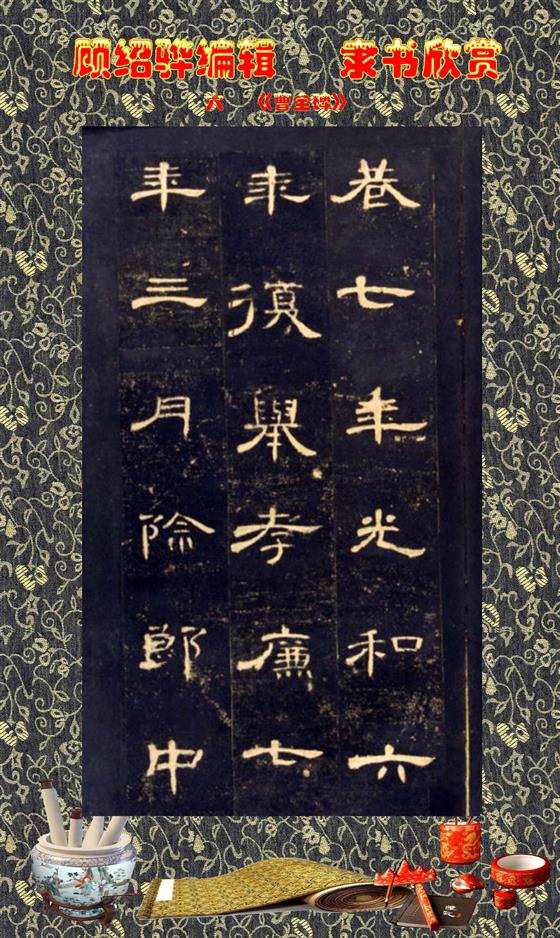 顾绍骅编辑 隶书欣赏
六 《曹全碑》
巷七年光和六
年復舉孝廉七
年三月除郎中